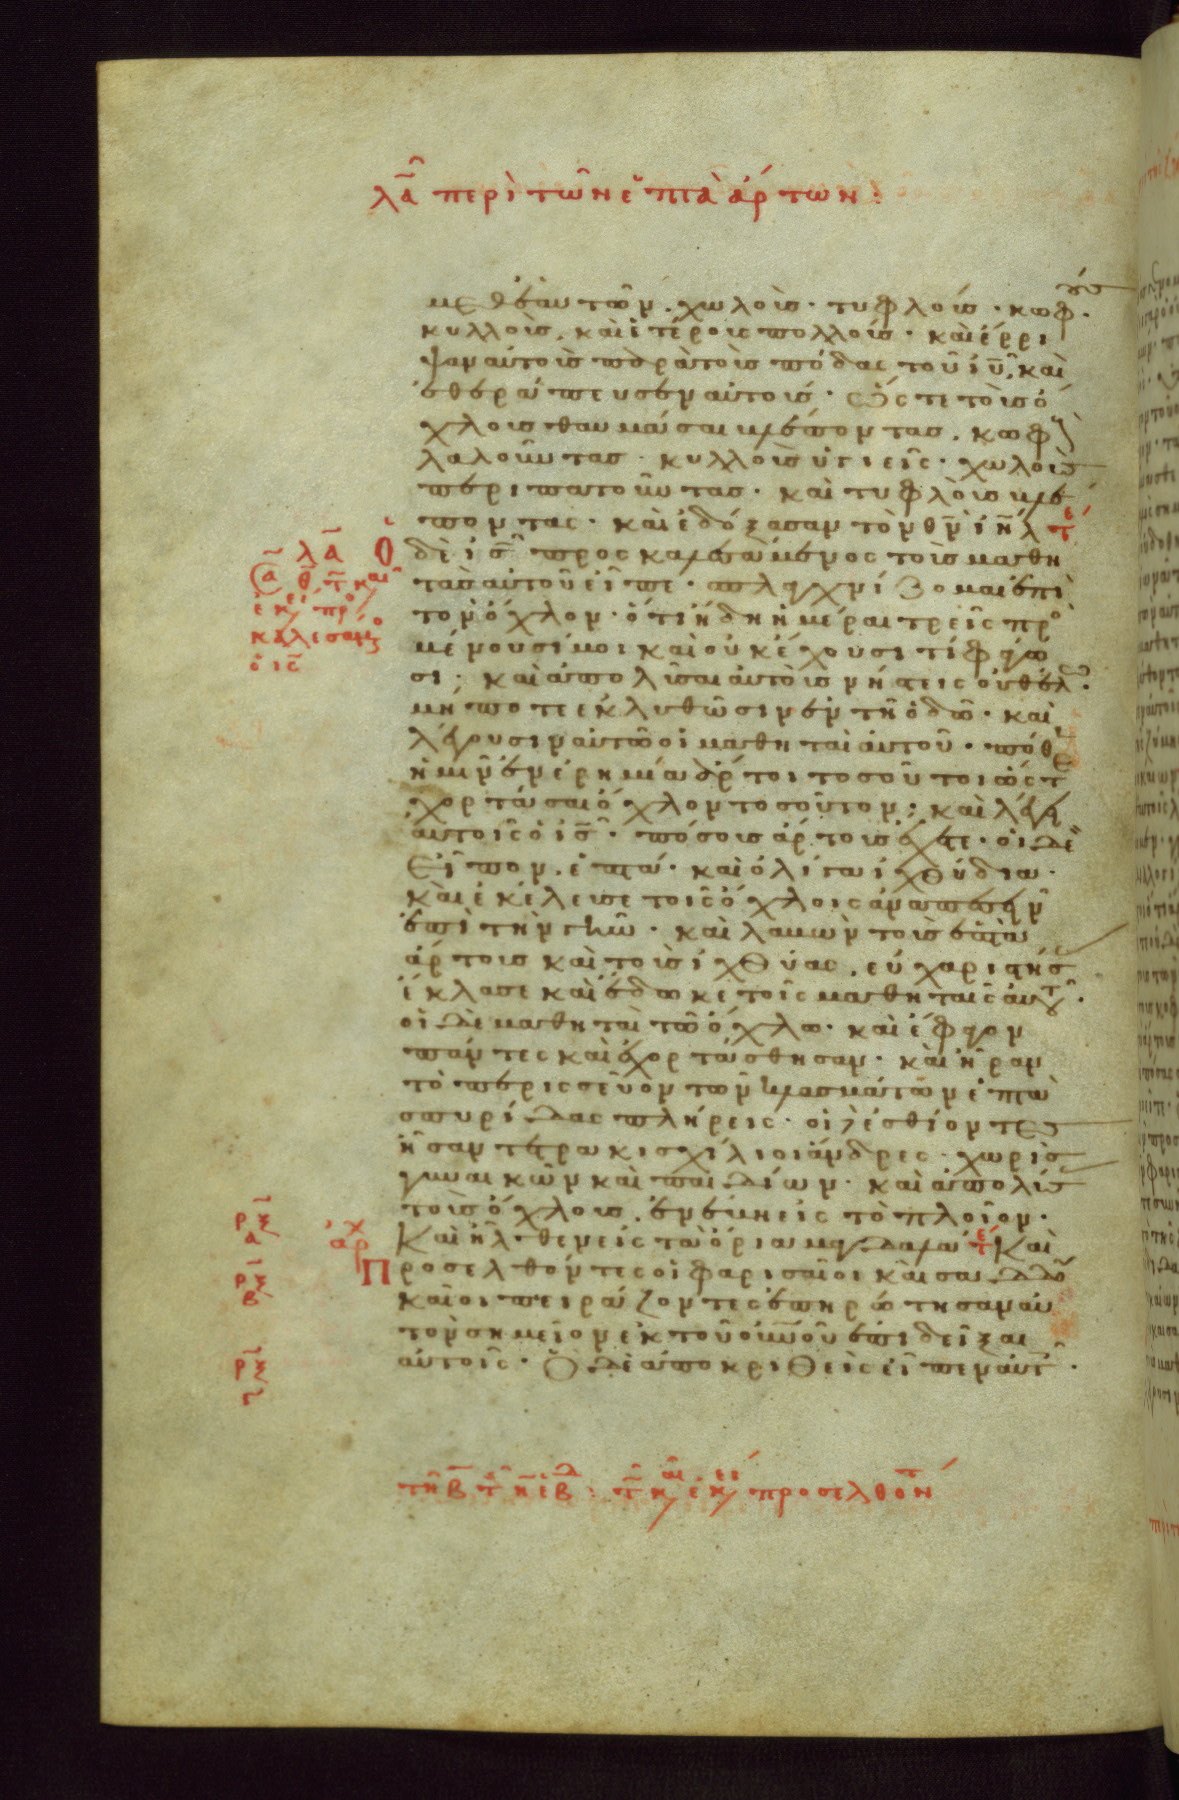 λα̅ περὶ τῶν ἑπτὰ ἄρτων:
μεθ ἑαυτῶν. χωλοὺς· τυφλούς· κωφούς·
κυλλοὺς, καὶ ἑτέρους πολλούς· καὶ ἔρρι
ψαν αὐτοὺς παρὰ τοὺς πόδας τοῦ ι̅υ̅, καὶ
ἐθεράπευσεν αὐτούς· ὥστε τοὺς ὄ
χλους θαυμάσαι βλέποντας. κωφ
λαλοῦντας· κυλλοὺς ὑγιεῖς· χωλοὺς
περιπατοῦντας· καὶ τυφλοὺς βλέ
ποντας· καὶ ἐδόξασαν τὸν θ̅ν̅ ι̅η̅λ τε
λα̅
Ὁ
δὲ ι̅ς̅ προσκαλεσάμενος τοὺς μαθη
τὰς αὐτοῦ εἶπε· σπλαγχνίζομαι ἐπὶ
τὸν ὄχλον· ὅτι ἤδη ἡμέραι τρεῖς προ
καλεσάμενος
ὁ ι̅ς̅
μένουσί μοι καὶ οὐκ ἔχουσι τί φάγω
σι; καὶ ἀπολῦσαι αὐτοὺς νήστεις οὐ θέλω·
μήποτε ἐκλυθῶσιν ἐν τῆ ὁδῶ· καὶ
λέγουσιν αὐτῶ οἱ μαθηταὶ αὐτοῦ· πόθε
ἡμῖν ἐν ἐρημία ἄρτοι τοσοῦτοι ὥστ
χορτάσαι ὄχλον τοσοῦτον; καὶ λέγει
αὐτοῖς ὁ ι̅ς̅· πόσους ἄρτους ἔχετε· οἱ δὲ
εἶπον. ἑπτά· καὶ ὀλίγα ἰχθύδια·
καὶ ἐκέλευσε τοῖς ὄχλοις ἀναπεσεῖν
ἐπὶ τὴν γῆν· καὶ λαβὼν τοὺς ἑπτὰ
ἄρτους καὶ τοὺς ἰχθύας, εὐχαριστήσ
ἔκλασε καὶ ἔδωκε τοῖς μαθηταῖς αὐτοῦ·
οἱ δὲ μαθηταὶ τῶ ὄχλω· καὶ ἔφαγον
πάντες καὶ ἐχορτάσθησαν· καὶ ἦραν
τὸ περισσεῦον τῶν κλασμάτων ἑπτὰ
σπυρίδας πλήρεις· οἱ δὲ ἐσθίοντες
ἦσαν τετρακισχίλιοι ἄνδρες· χωρὶς
γυναικῶν καὶ παιδίων· καὶ ἀπολύσ
τοὺς ὄχλους. ἐνέβη εἰς τὸ πλοῖον·
ρξ̅
α
ἀρχ
Καὶ ἦλθεν εἰς τὰ ὅρια μαγδαλά τε Καὶ
ρξ̅
β
Προσελθόντες οἱ φαρισαῖοι καὶ σαδδου
καῖοι πειράζοντες ἐπηρώτησαν αὐ
τὸν σημεῖον ἐκ τοῦ οὐ̅νοῦ ἐπιδεῖξαι
ρξ̅
γ
αὐτοῖς· Ὁ δὲ ἀποκριθεὶς εἶπεν αὐτ·